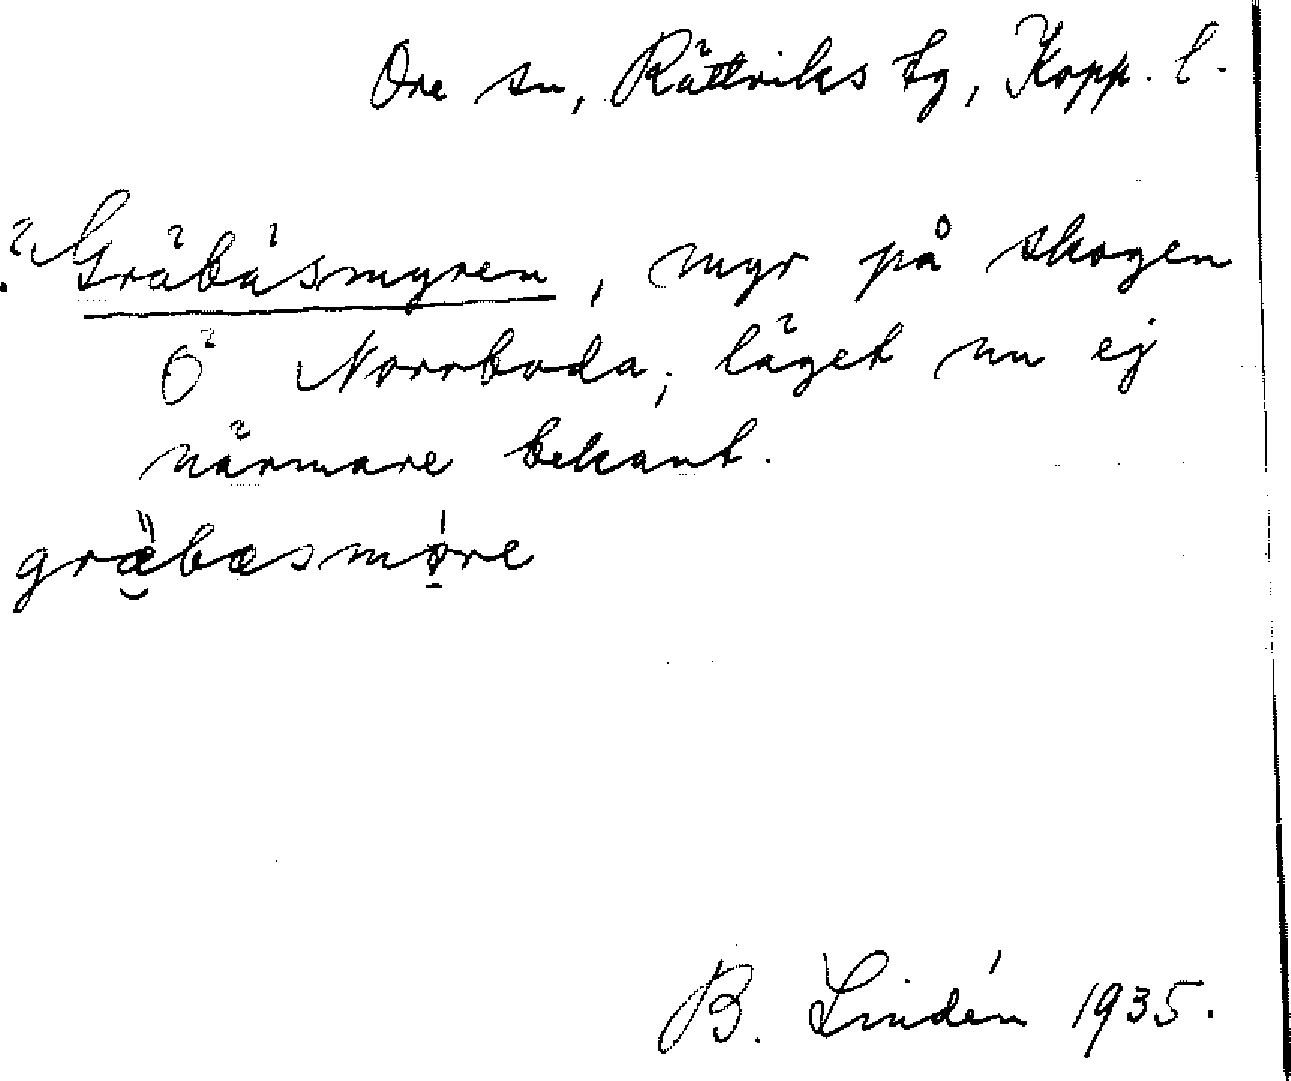 Ore sn, Rättviks tg, Kopp. l.
? Gräbäsmyren, myr på skogen
Ö Norrboda; läget nu ej
närmare bekant.
gräbäsmøre
B. Lindén 1935.